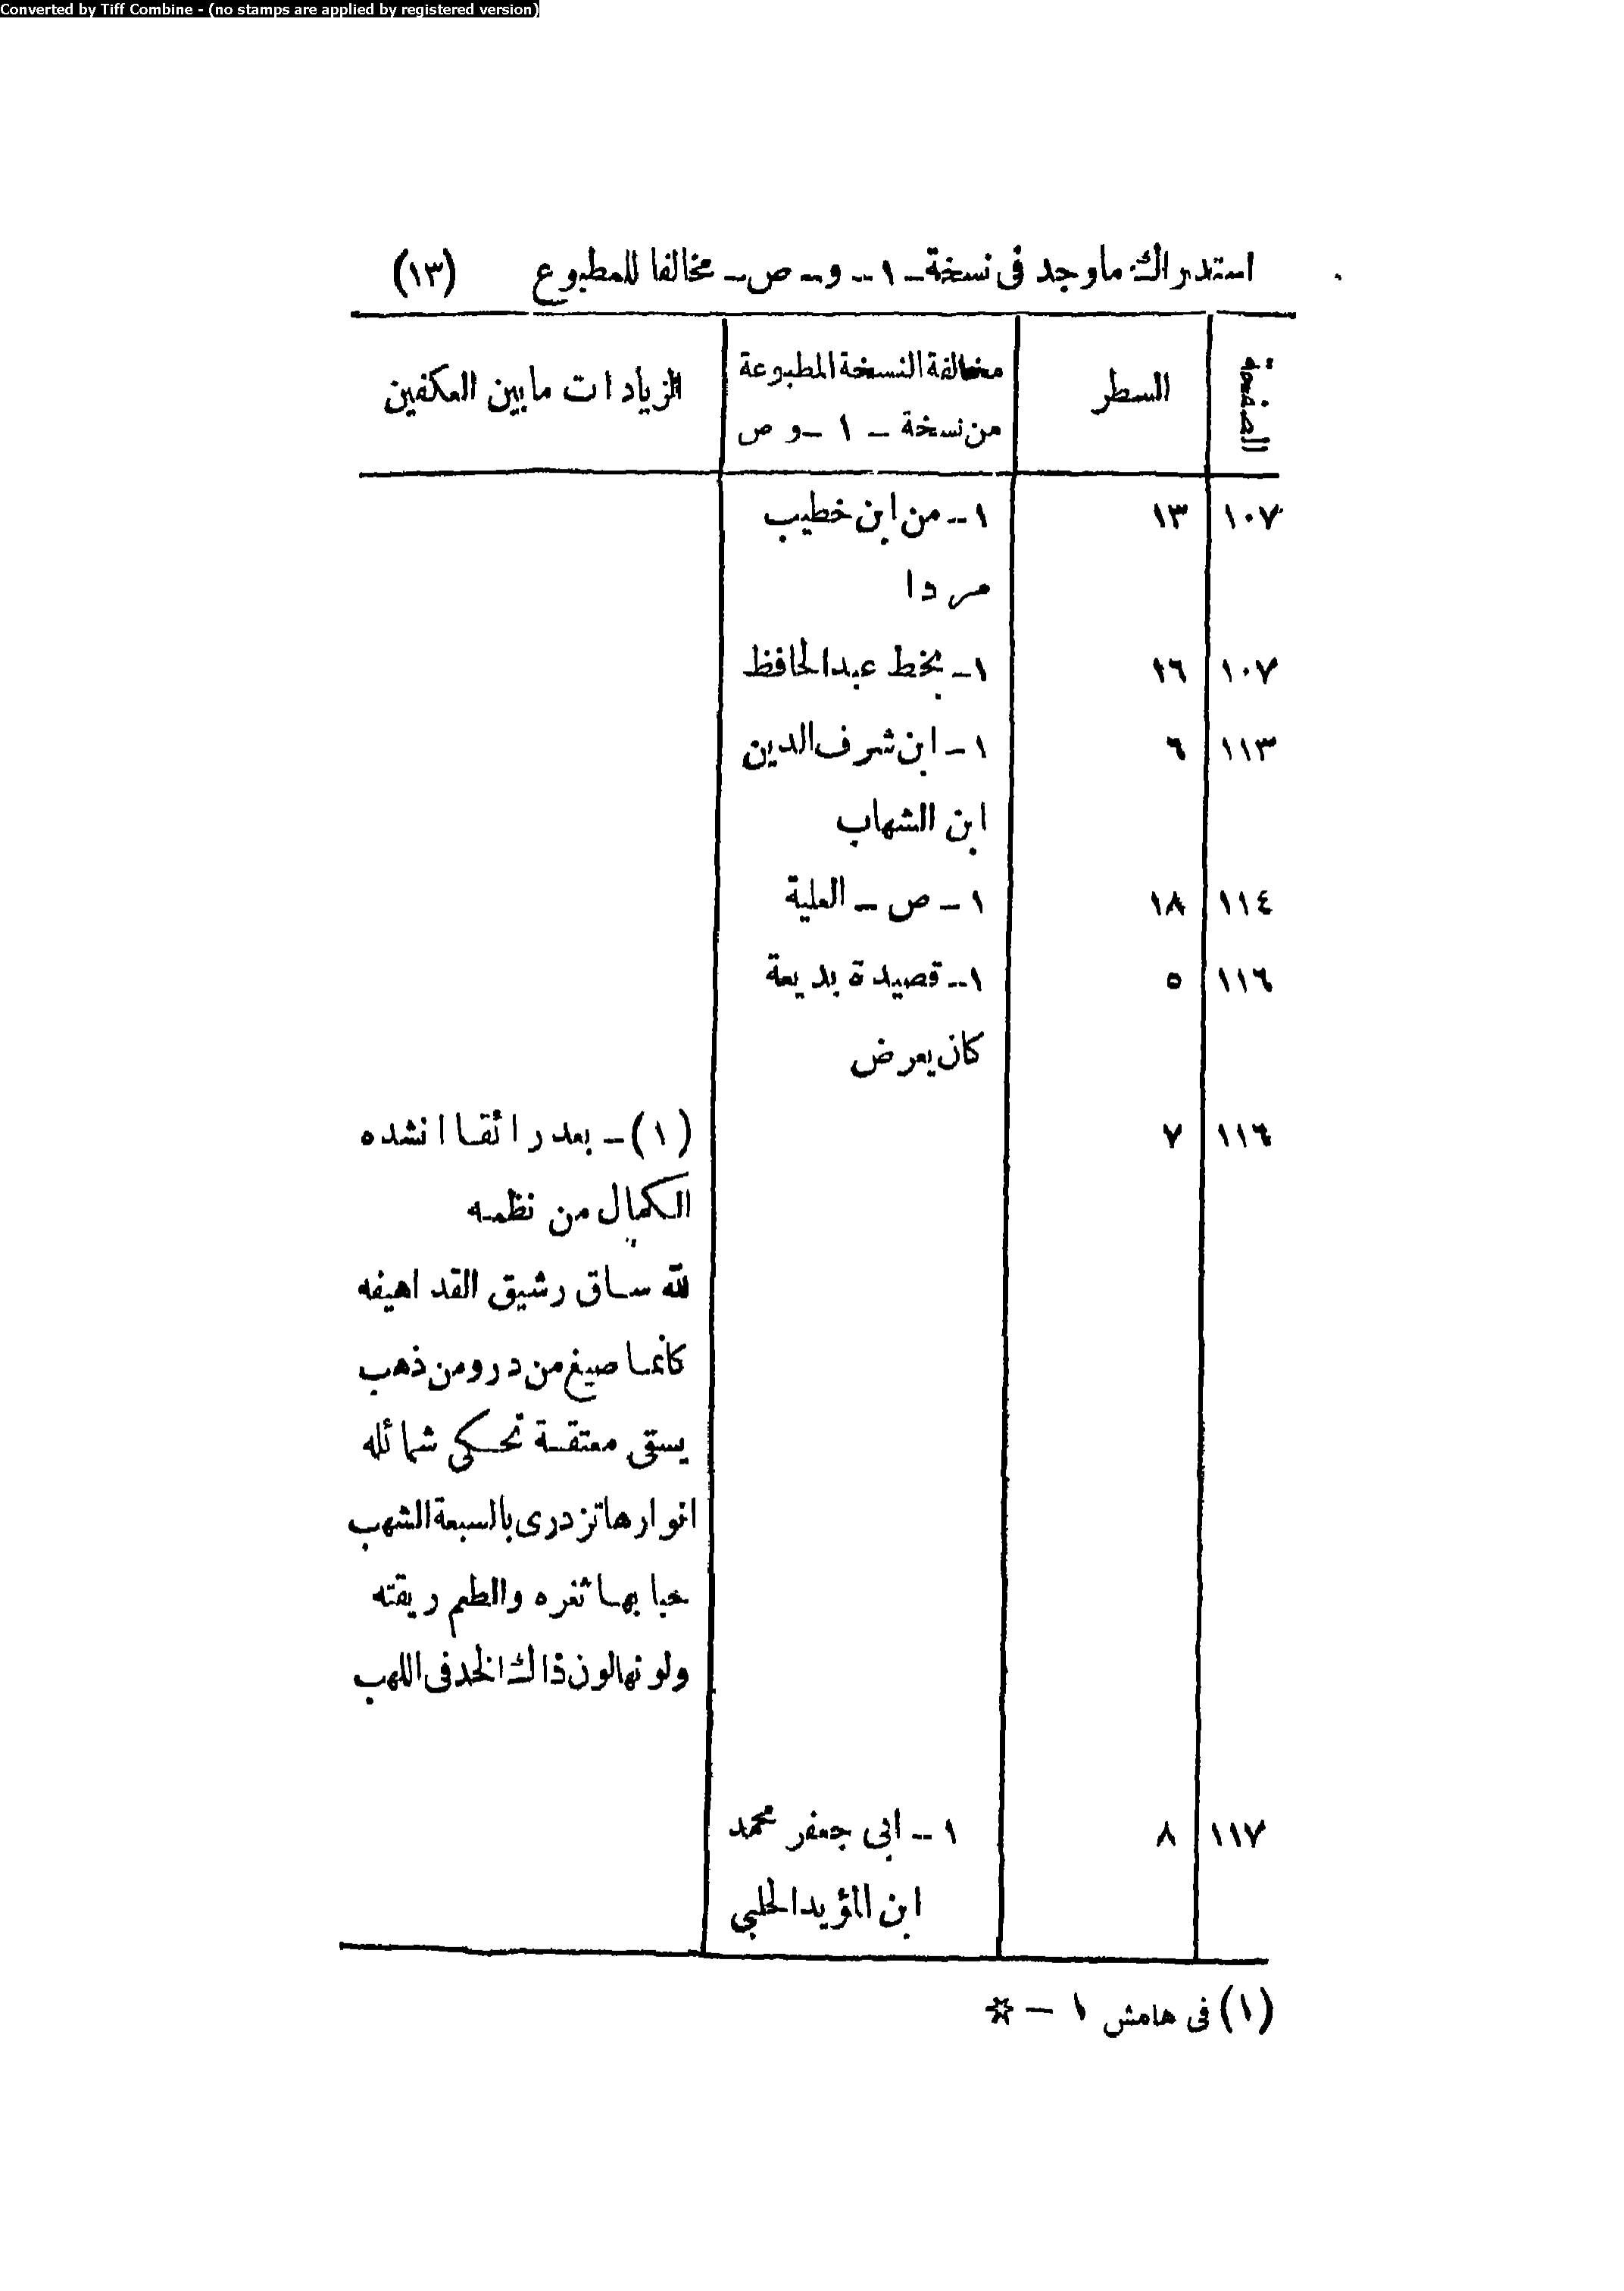 Converted by Tiff Combine - (no stamps are applied by registered version)
استدراك ماوجد فى نسخة - ١ - و - ص - مخالفا للمطبوع (١٣)
الصفحة السطر مخالفة النسخة المطبوعة الزيادات مابين العكفين
من نسخة - ١ - و ص
١٠٧ ١٣ ١ - من ابن خطيب
مردا
١٠٧ ١٦ ١ - بخط عبدالحافظ
١١٣ ٦ ١ - ابن شرف الدين
ابن الشهاب
١١٤ ١٨ ١ - ص - العلية
١١٦ ٥ ١ - قصيدة بديعة
كان يعرض
١١٦ ٧ (١) - بعد رائقا انشده
الكمال من نظمه
لله ساق رشيق القد اهيفه
كانما صيغ من درومن ذهب
يسقى معتقة تحكى شمائله
انوارها تزدرى بالسبعة الشهب
حبا بها ثغره والطعم ريقته
ولونهالون ذاك الخد فى اللهب
١١٧ ٨ ١ - ابى جعفر محمد
ابن المؤيد الحلبي
(١) فى هامش ١ - ☆